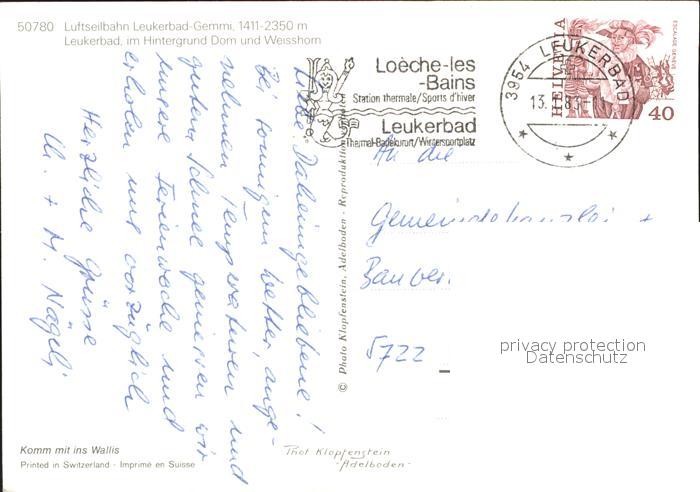 50780 Luftseilbahn Leukerbad-Gemmi, 1411-2350 m
Leukerbad, im Hintergrund Dom und Weisshorn
Loèche-les
-Bains
Station thermale/Sports d'hiver
Leukerbad
Thermal-Badekurort/Wintersportplatz
3954 LEUKERBAD
HELVETIA
ESCALADE GENÈVE
40
Liebe Daheimgebliebene!
Bei sonnigem Wetter, ange-
nehmen Temperaturen und
gutem Schnee geniessen wir
unsere Ferienwoche und
erholen uns vorzüglich
Herzliche Grüsse
U. + M. Nägeli
An die
Gemeindekanzlei +
Bauver.
5722
privacy protection
Datenschutz
© Photo Klopfenstein, Adelboden - Reproduktion
Komm mit ins Wallis
Printed in Switzerland - Imprimé en Suisse
Phot Klopfenstein
-Adelboden-